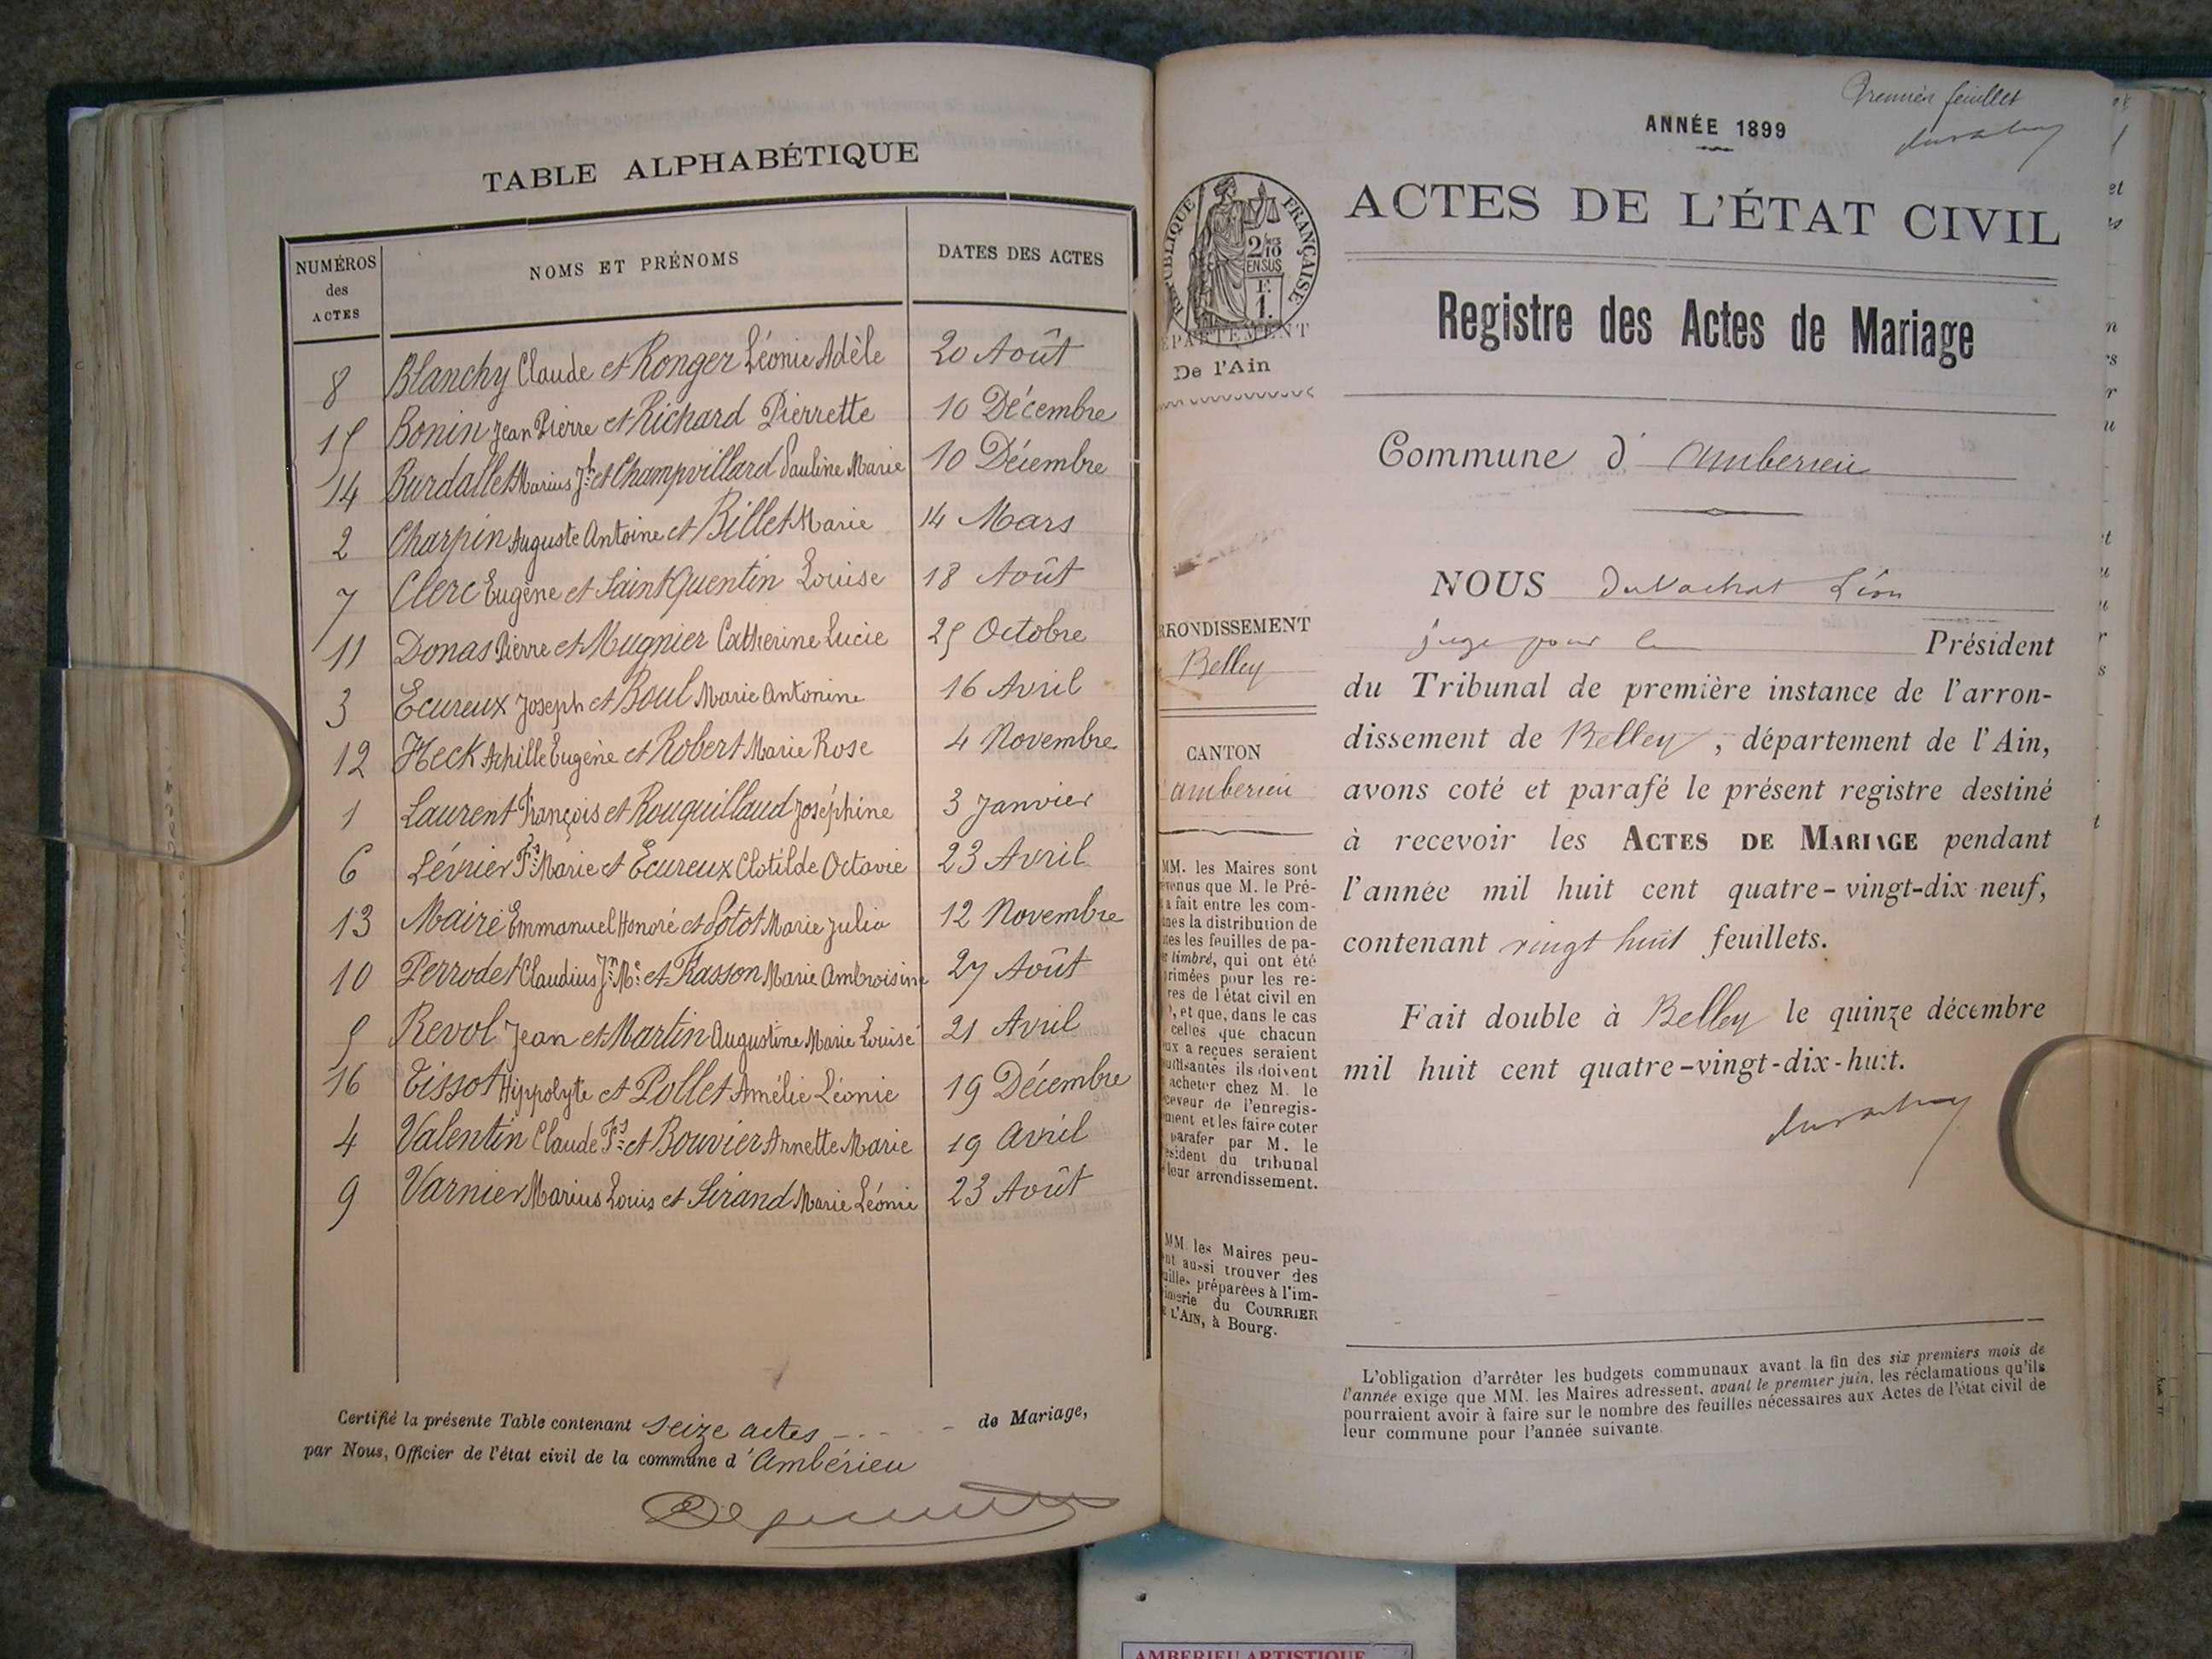 TABLE ALPHABÉTIQUE
NUMÉROS des ACTES
NOMS ET PRÉNOMS
DATES DES ACTES
8 Blanchy Claude et Ronger Léonie Adèle 20 Août
15 Bonin Jean Pierre et Richard Pierrette 10 Décembre
14 Burdallet Marius Jh et Champvillard Pauline Marie 10 Décembre
2 Charpin Auguste Antoine et Billet Marie 14 Mars
7 Clerc Eugène et Saint Quentin Louise 18 Août
11 Donas Pierre et Mugnier Catherine Lucie 25 Octobre
3 Ecureux Joseph et Boul Marie Antonine 16 Avril
12 Heck Achille Eugène et Robert Marie Rose 4 Novembre
1 Laurent François et Rouquillaud Joséphine 3 Janvier
6 Lévrier Fs Marie et Ecureux Clotilde Octavie 23 Avril
13 Maire Emmanuel Honoré et Potot Marie Julia 12 Novembre
10 Perrodet Claudius Jn Me et Rasson Marie Ambroisine 27 Août
5 Revol Jean et Martin Augustine Marie Louise 21 Avril
16 Tissot Hippolyte et Pollet Amélie Léonie 19 Décembre
4 Valentin Claude Fs et Bouvier Annette Marie 19 Avril
9 Varnier Marius Louis et Sirand Marie Léonie 23 Août
Certifié la présente Table contenant seize actes de Mariage,
par Nous, Officier de l'état civil de la commune d'Ambérieu
Premier feuillet
ANNÉE 1899
ACTES DE L'ÉTAT CIVIL
Registre des Actes de Mariage
Commune d'Amberieu
NOUS Duvachat Léon
juge pour le Président
du Tribunal de première instance de l'arron-
dissement de Belley, département de l'Ain,
avons coté et parafé le présent registre destiné
à recevoir les ACTES DE MARIAGE pendant
l'année mil huit cent quatre-vingt-dix neuf,
contenant vingt huit feuillets.
Fait double à Belley le quinze décembre
mil huit cent quatre-vingt-dix-huit.
L'obligation d'arrêter les budgets communaux avant la fin des six premiers mois de
l'année exige que MM. les Maires adressent, avant le premier juin, les réclamations qu'ils
pourraient avoir à faire sur le nombre des feuilles nécessaires aux Actes de l'état civil de
leur commune pour l'année suivante.
PUBLIQUE FRANÇAISE
2/10
EN SUS
F.
1.
ÉPARTEMENT
De l'Ain
RRONDISSEMENT
Belley
CANTON
amberieu
MM. les Maires sont
venus que M. le Pré-
a fait entre les com-
nes la distribution de
tes les feuilles de pa-
r timbré, qui ont été
primées pour les re-
res de l'état civil en
, et que, dans le cas
celles que chacun
ux a reçues seraient
uffisantes ils doivent
acheter chez M. le
ceveur de l'enregis-
ment et les faire coter
parafer par M. le
ésident du tribunal
leur arrondissement.
MM. les Maires peu-
nt aussi trouver des
uilles préparées à l'im-
imerie du COURRIER
L'AIN, à Bourg.
AMBERIEU ARTISTIQUE